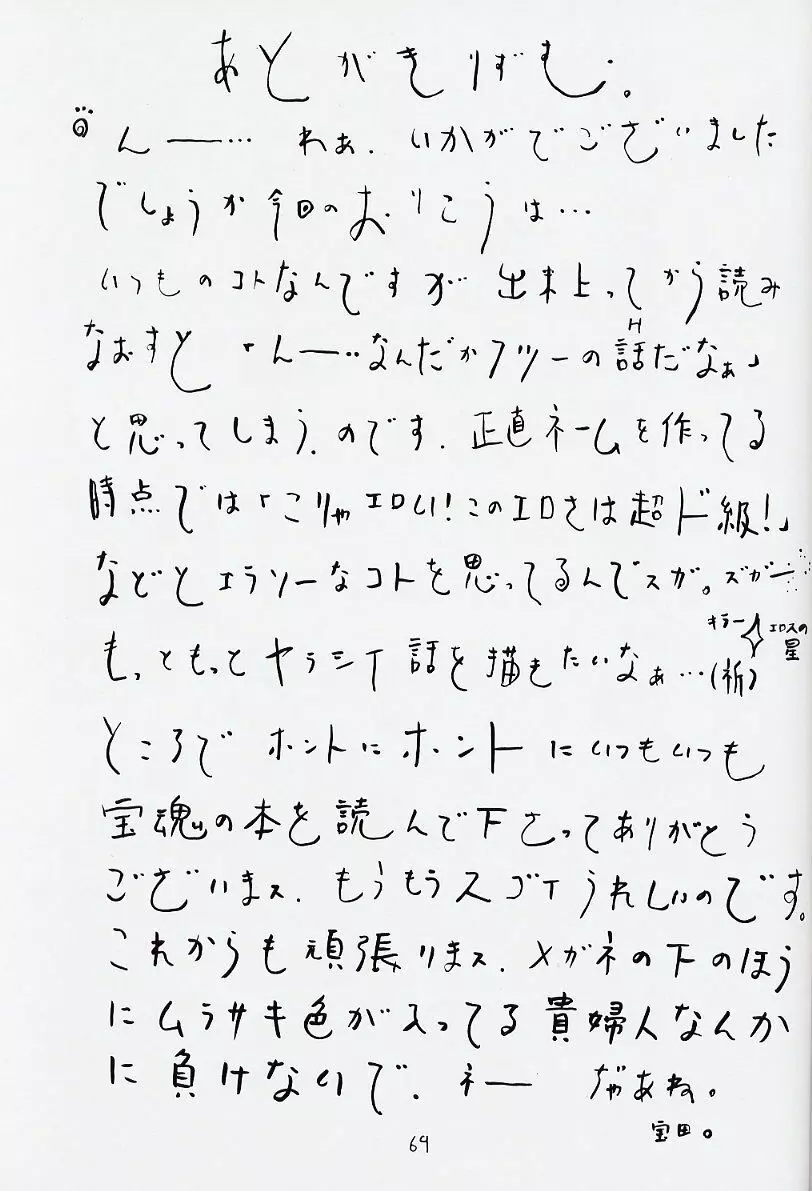 あとがきりずむ。
んー… ねぇ. いかがでございました
でしょうか今回のおりこうは…
いつものコトなんですが出来上ってから読み
なおすと「んー…なんだかフツーのH話だなぁ」
と思ってしまう.のです.正直ネームを作ってる
時点では「こりゃエロい!このエロさは超ド級!」
などとエラソーなコトを思ってるんでスガ。ズガー
キラー エロスの星
もっともっとヤラシイ話を描きたいなぁ…(祈)
ところでホントにホントにいつもいつも
宝魂の本を読んで下さってありがとう
ございまス.もうもうスゴイうれしいのです。
これからも頑張りまス.メガネの下のほう
にムラサキ色が入ってる貴婦人なんか
に負けないで.ネー ぢゃあね。
宝田。
64